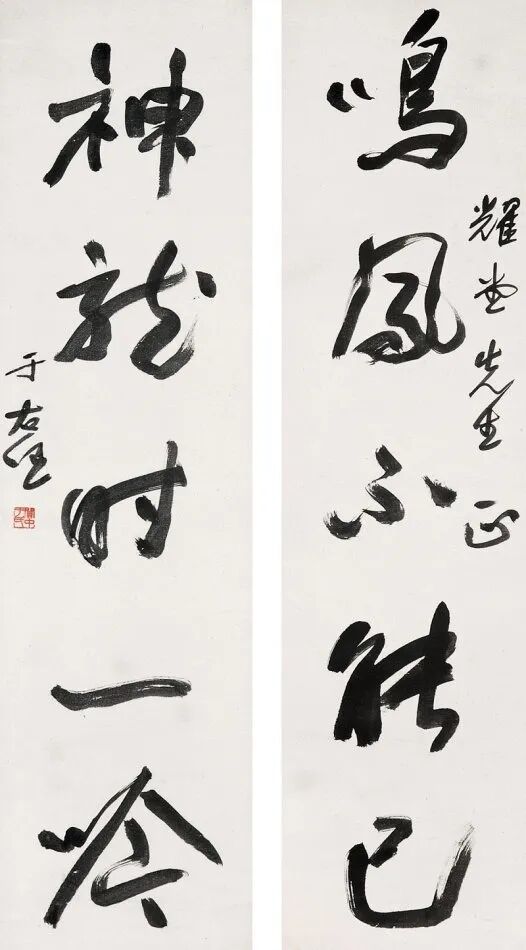 鳴鳳不能已
耀堂先生正
神龍时一吟
于右任
關中于氏